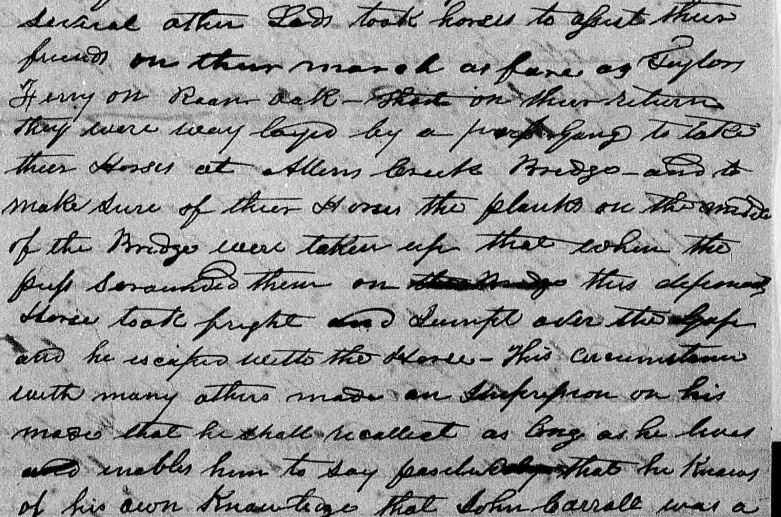 several other Lads took horses to assist their
friends on their march as fare as Taylors
Ferry on Roan oak – on their return
they were way layed by a press Gang to take
their Horses at Allens Creek Bridge – and to
make sure of their Horses the planks on the middle
of the Bridge were taken up that when the
press serounded them on this deponents
Horse took fright and Jumpt over the Gap
and he escaped with the Horse – This circumstance
with many others made an Impression on his
that he shall recollect as long as he lives
and enables him to say that he knows
of his own Knowledge that John Carroll was a